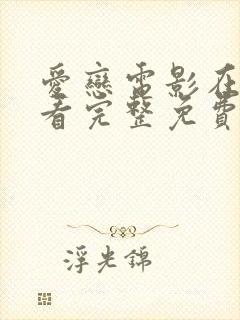 愛戀電影在
看完整免費
浮光錦